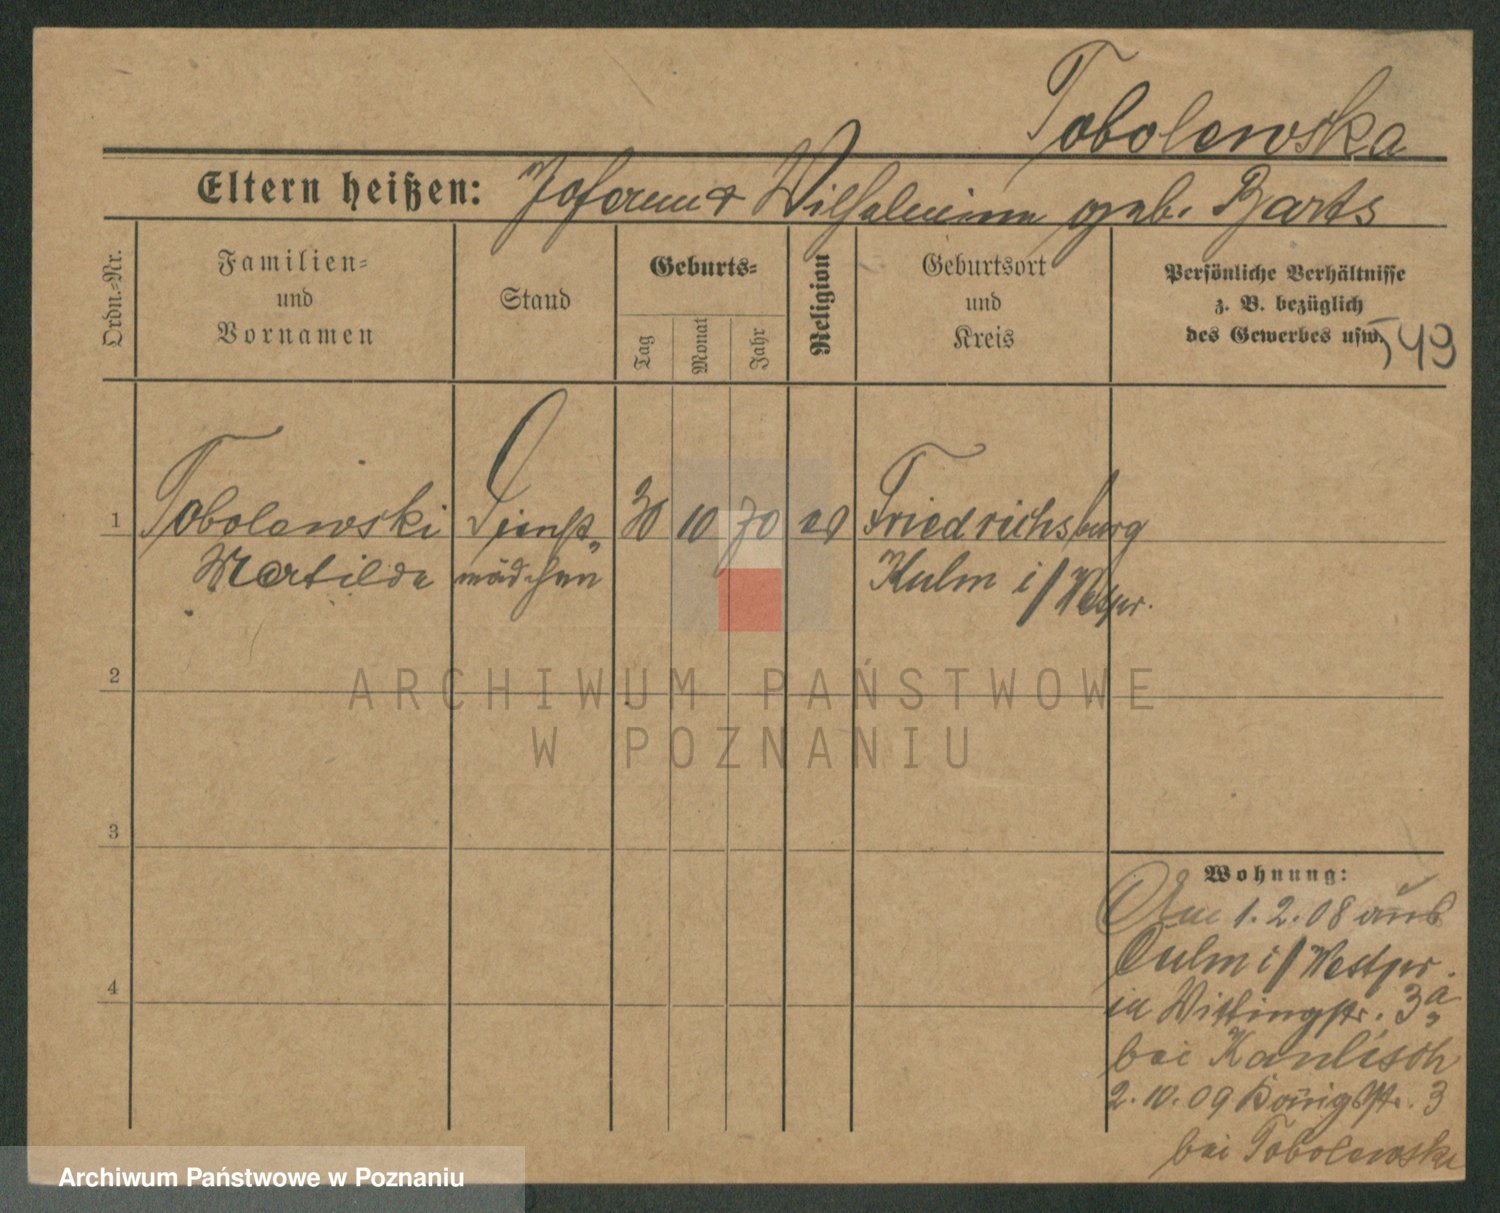 Tobolewska
Eltern heißen: Johann & Wilhelmine geb. Barts
Ordn.-Nr.
Familien-
und
Vornamen
Stand
Geburts-
Tag
Monat
Jahr
Religion
Geburtsort
und
Kreis
Persönliche Verhältnisse
z. B. bezüglich
des Gewerbes usw.
549
1 Tobolewski Dienst- 30 10 70 ev Friedrichsburg
Martilde mädchen Kulm i/Westpr.
2
3
4
Wohnung:
Am 1.2.08 aus
Culm i/Westpr.
in Wittingstr. 3a
bei Kanlisch
2.10.09 Königstr. 3
bei Tobolewski
ARCHIWUM PAŃSTWOWE
W POZNANIU
Archiwum Państwowe w Poznaniu